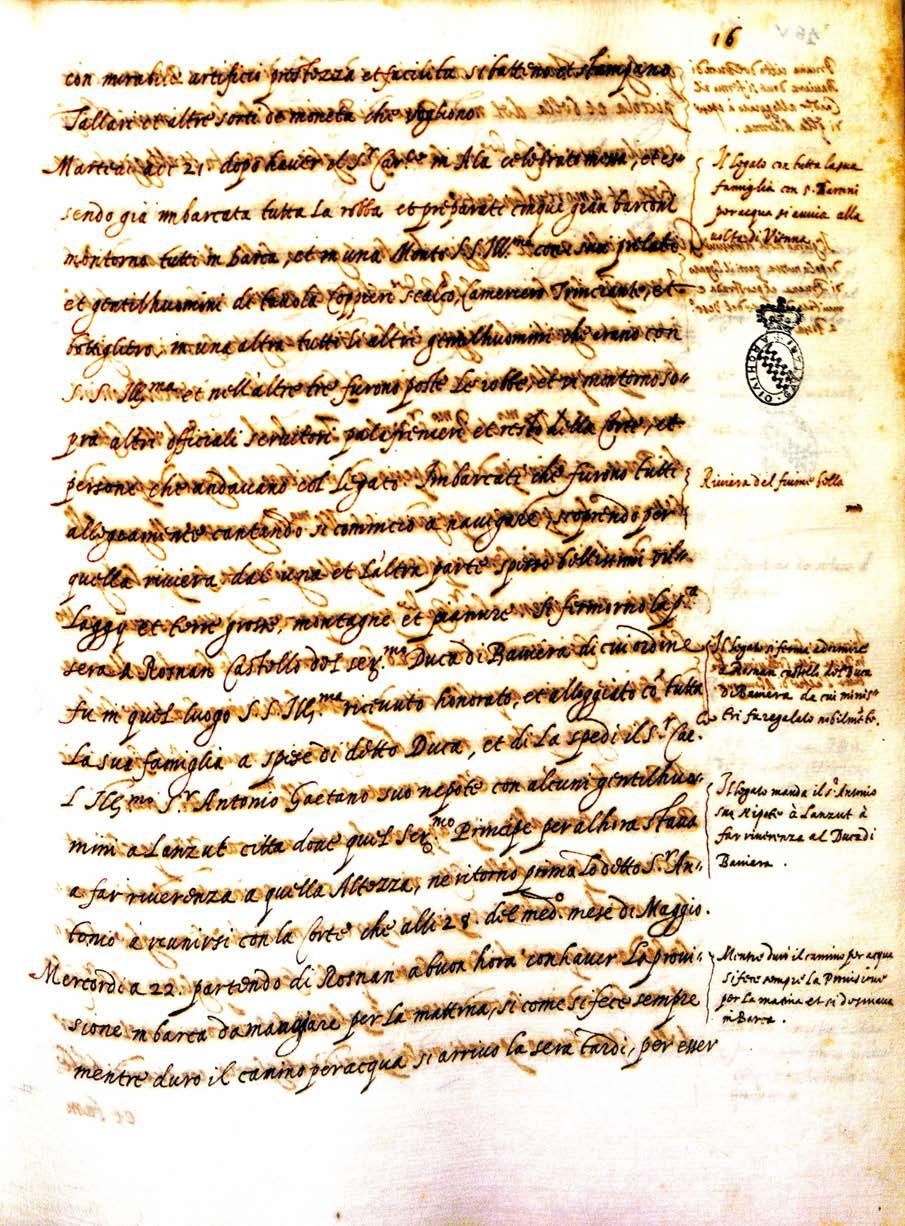 16
con mirabile artificio prestezza et facilita si batteno et stampano
Tallari et altre sorti de moneta che vogliono.
Martedi adi 21. dopo haver il S.r Car.le in Ala celebrato messa, et es-
sendo già imbarcata tutta la robba et preparati cinque gran barconi
montorno tutti in barca, et in una Monto S.S. Ill.ma con i suoi prelati
et gentilhuomini de tavola Coppieri Scalco, Cameriero Trinciante, et
bottigliero, in una altra tutti li altri gentilhuomini che erano con
S. S. Ill.ma et nell'altre tre furono poste le robbe, et vi montorno so-
pra altri officiali servitori palafrenieri et resto della Corte, et
persone che andavano col Legato. Imbarcati che furono tutti
allegramente cantando si comincio a navigare, scoprendo per
quella riviera dal una et l'altra parte spesso bellissimi vil-
laggy et terre grosse, montagne et pianure. Si fermorno la p.a
sera a Rosnan Castello del ser.mo Duca di Baviera di cui ordine
fu in quel luogo S. S. Ill.ma ricevuto honorato, et alloggiato cõ tutta
la sua famiglia a spese di detto Duca, et di la spedi il S.r Car.
l Ill.mo S.r Antonio Gaetano suo nepote con alcuni gentilhuo-
mini a Lanzut citta dove quel Ser.mo Principe per alhora stava
a far riverenza a quella Altezza, ne ritorno prima lo detto S.r An-
tonio a reunirsi con la Corte che alli 28. del med.o mese di Maggio.
Mercordi a 22. partendo di Rosnan a buon hora con haver la provi-
sione in barca da mangiare per la mattina, si come si fece sempre
mentre duro il camino per acqua si arrivo la sera tardi, per esser
Il legato con tutta la sua
famiglia con 5. Barconi
per acqua si avvia alla
volta di Vienna
Riviera del fiume bella
Il legato si ferma a dormire
a Rosnan castello del Duca
di Baviera da cui minis-
tri fu regalato nobilm.te.
Il legato manda il s.r Antonio
suo Nipote à Lanzut à
far riverenza al Duca di
Baviera.
Mentre durò il camino per acqua
si fece sempre la Provisione
per la matina et si
in Barca.